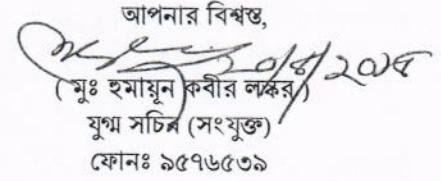 আপনার বিশ্বস্ত,
২০/৪/২০১৫
( মুঃ হুমায়ূন কবীর লস্কর )
যুগ্ম সচিব (সংযুক্ত)
ফোনঃ ৯৫৭৬৫৩৯